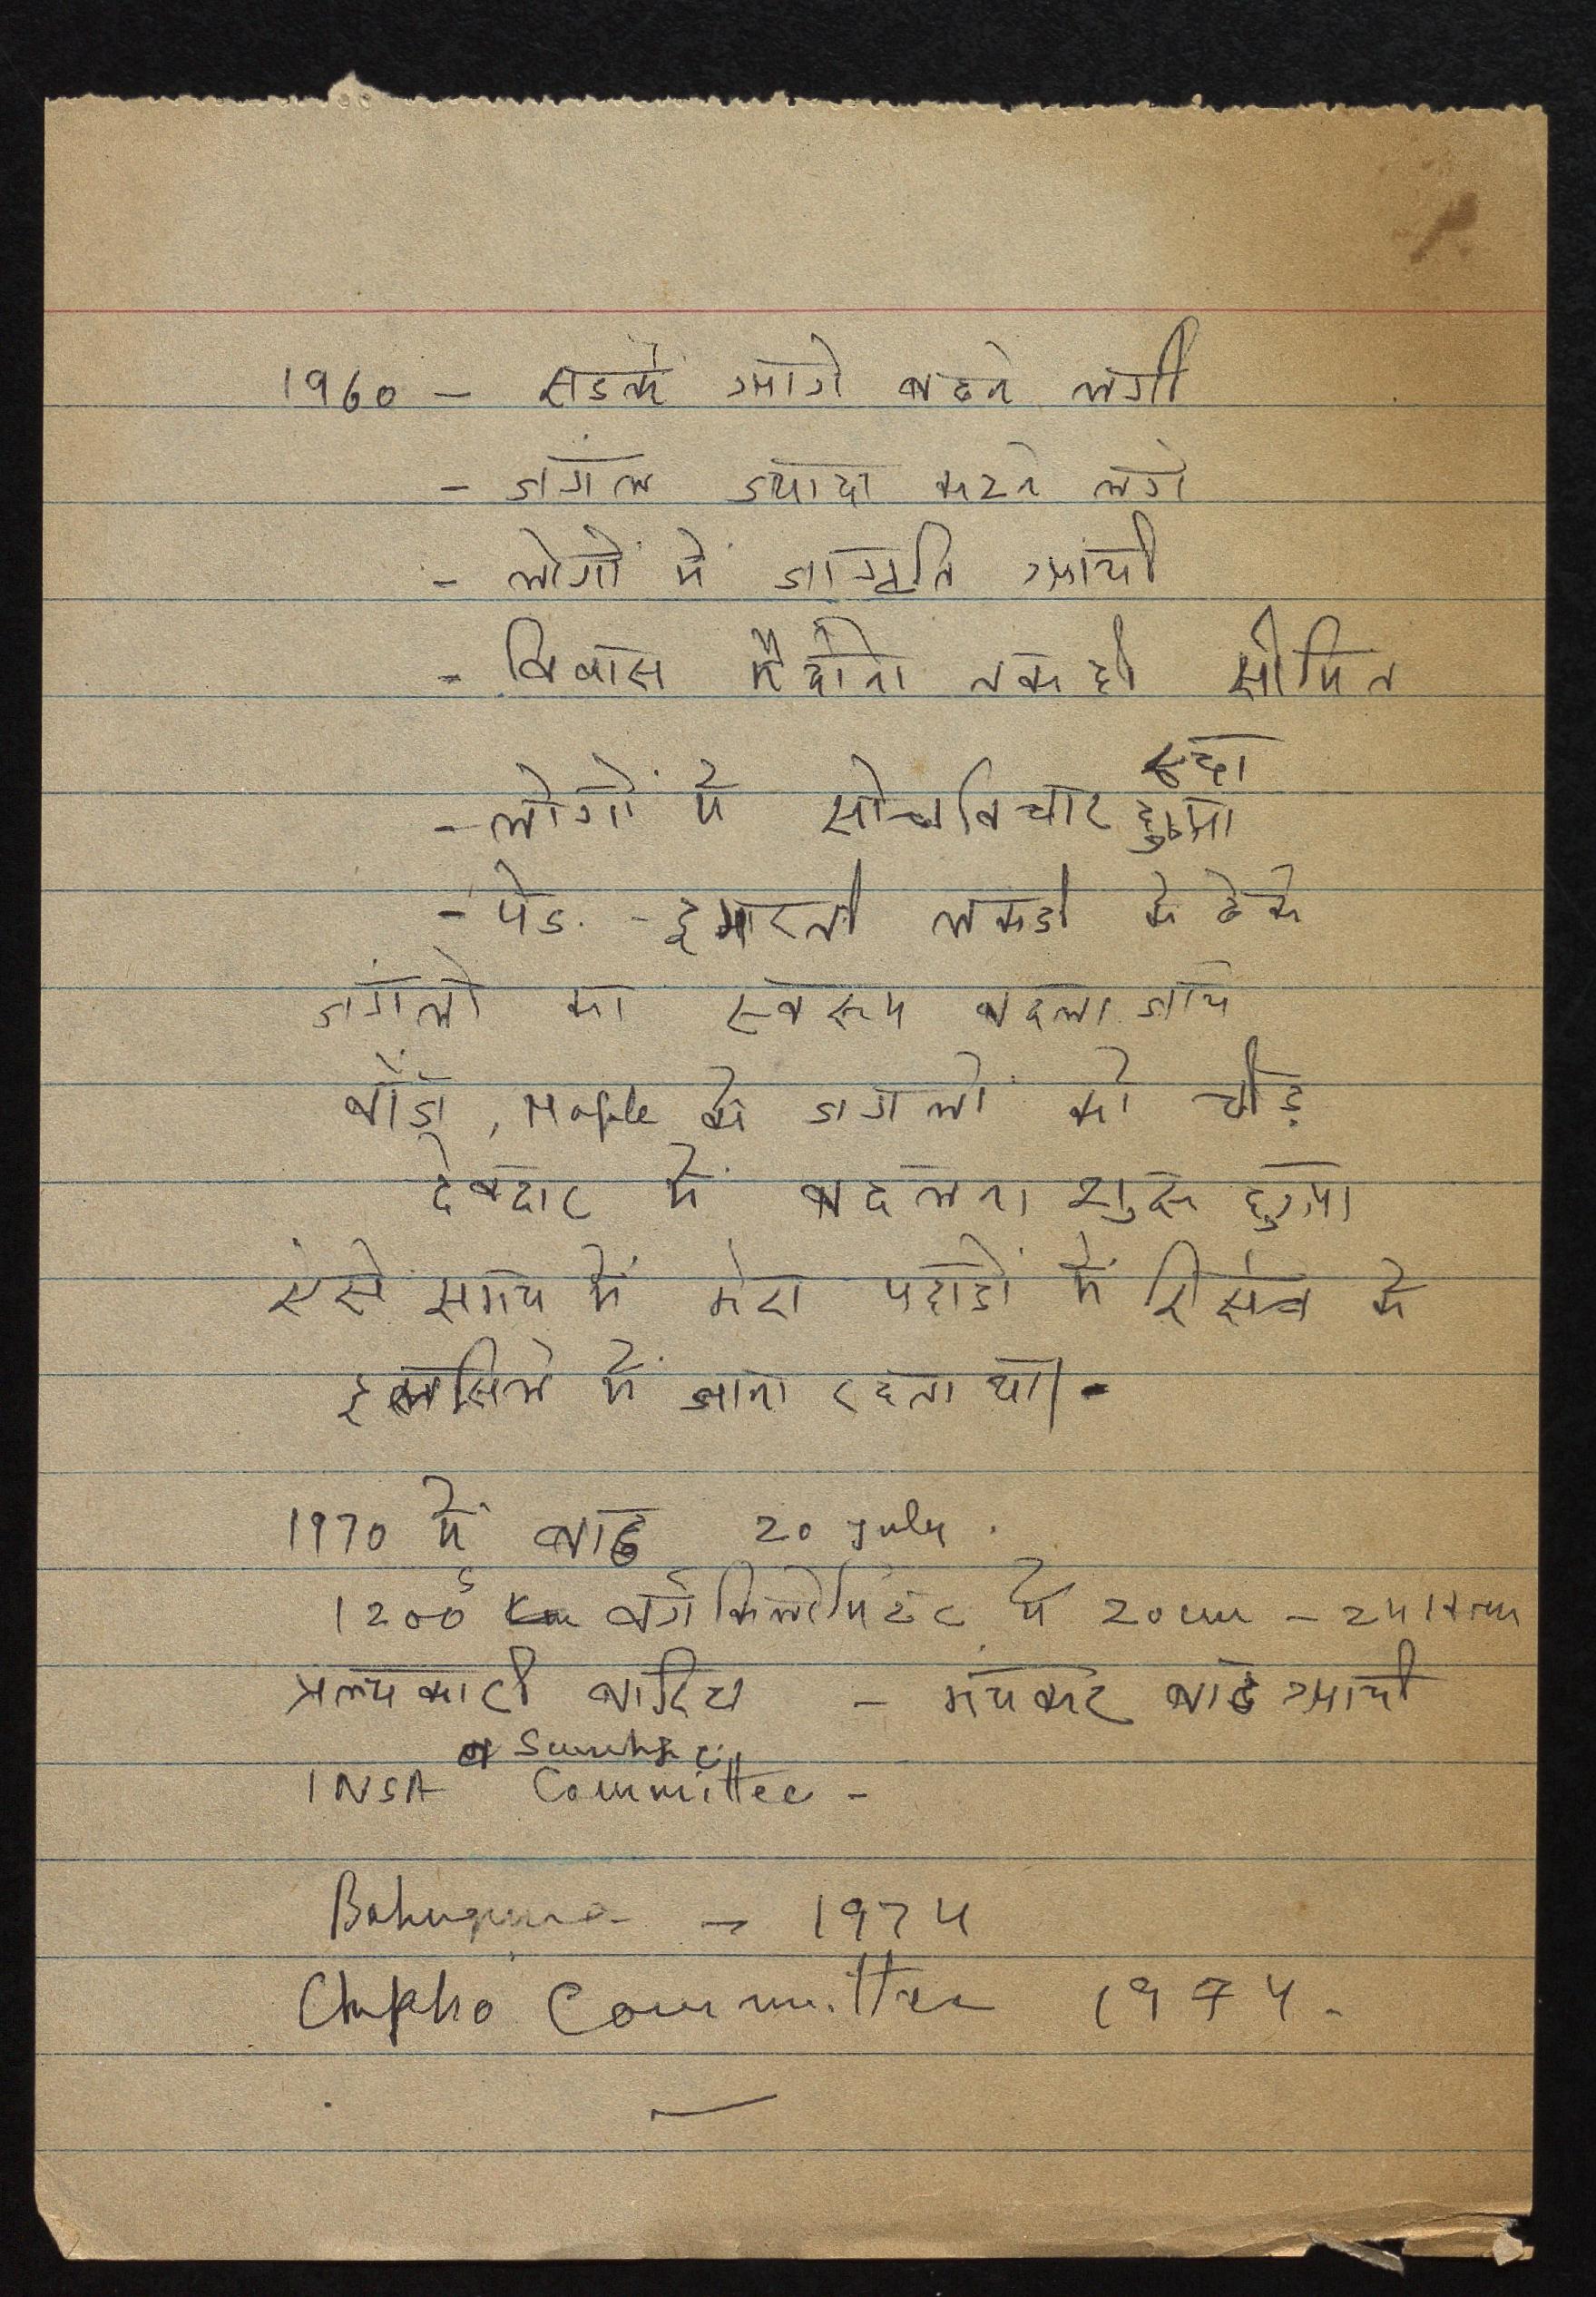 1960 - सडकें आगे बढने लगी
- जंगल ज्यादा कटने लगे
- लोगों में जागृति आयी
- विकास मैदानों तक ही सीमित
- लोगों में सोचविचार पैदा हुआ
- पेड. - इमारती लकडी के ठेके
जंगलो का स्वरूप बदला जाय
बाँज, Maple के जंगलों को चीड़
देवदार में बदलना शुरू हुआ
ऐसे समय में मेरा पहाडों में रिसर्च के
सिलसिले में जाना रहता था।
1970 में बाढ 20 July.
1200 वर्ग किलोमिटर में 20cm - 24 Hrs
प्रलयकारी बारिश - भंयकर बाढ आयी
INSA Committee -
Bahuguna - 1974
Chipko Committee 1974.